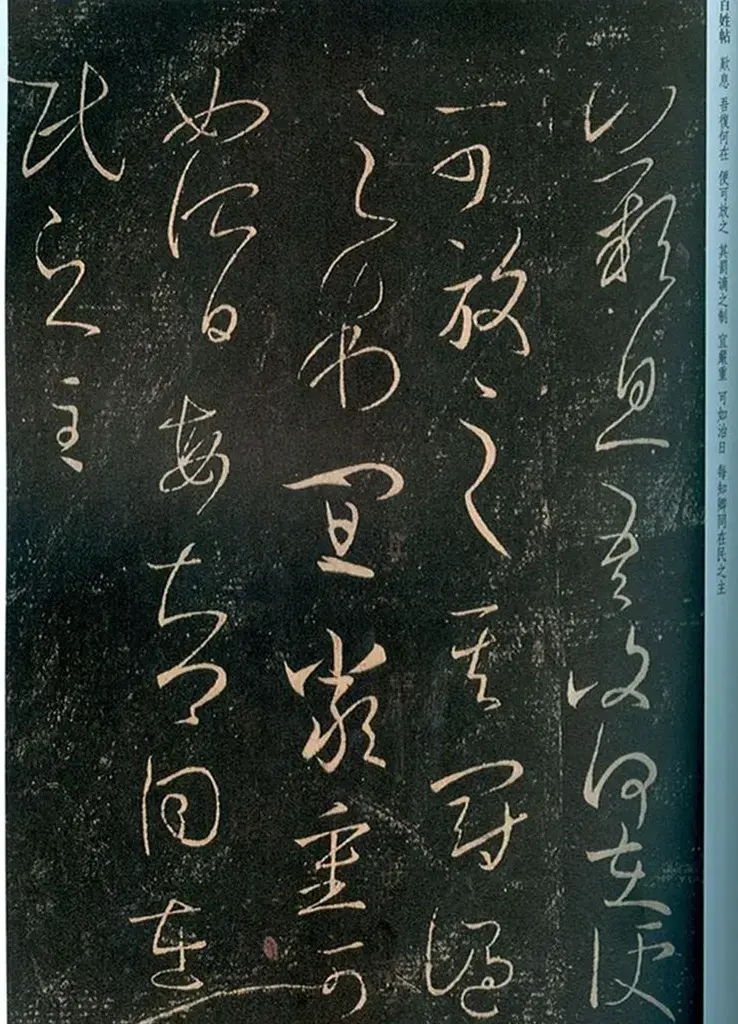 百姓帖 歎息 吾復何在 便可放之 其罰謫之制 宜嚴重 可如治日 每知卿同在民之主
歎息吾復何在便
可放之其罰謫
之制宜嚴重可
如治日每知卿同在
民之主